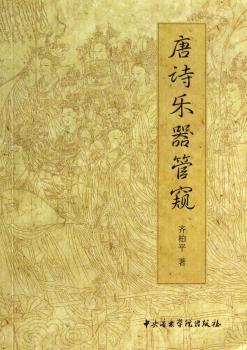 唐诗乐器管窥
齐柏平 著
中央音乐学院出版社